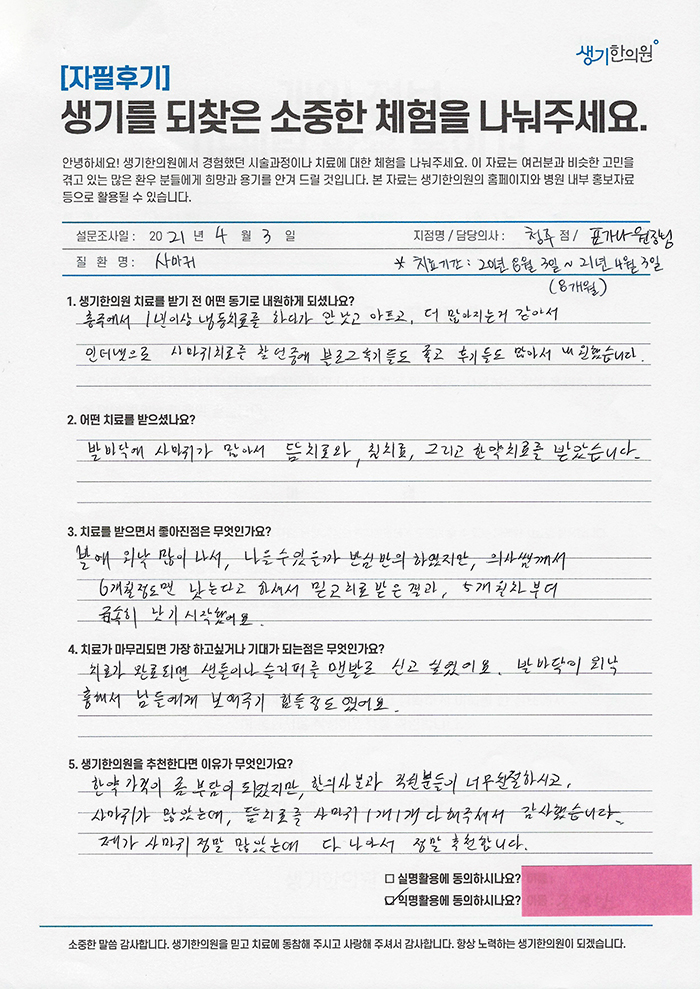 생기한의원
[자필후기]
생기를 되찾은 소중한 체험을 나눠주세요.
안녕하세요! 생기한의원에서 경험했던 시술과정이나 치료에 대한 체험을 나눠주세요. 이 자료는 여러분과 비슷한 고민을
겪고 있는 많은 환우 분들에게 희망과 용기를 안겨 드릴 것입니다. 본 자료는 생기한의원의 홈페이지와 병원 내부 홍보자료
등으로 활용될 수 있습니다.
설문조사일 : 2021 년 4 월 3 일 지점명 / 담당의사 : 청주 점 / 표가나 원장님
질 환 명 : 사마귀 * 치료기간 : 20년 8월 3일 ~ 21년 4월 3일
(8개월)
1. 생기한의원 치료를 받기 전 어떤 동기로 내원하게 되셨나요?
충주에서 1년이상 냉동치료를 하다가 안낫고 아프고, 더 많아지는거 같아서
인터넷으로 사마귀치료를 찾던중에 블로그후기들도 좋고 후기들도 많아서 내원했습니다.
2. 어떤 치료를 받으셨나요?
발바닥에 사마귀가 많아서 뜸치료와, 침치료, 그리고 한약치료를 받았습니다.
3. 치료를 받으면서 좋아진점은 무엇인가요?
발에 워낙 많이 나서, 나을수있을까 반심반의 하였지만, 의사쌤께서
6개월정도면 낫는다고 하셔서 믿고 치료받은 결과, 5개월차부터
급속히 낫기 시작했어요.
4. 치료가 마무리되면 가장 하고싶거나 기대가 되는점은 무엇인가요?
치료가 완료되면 샌들이나 슬리퍼를 맨발로 신고 싶었어요. 발바닥이 워낙
흉해서 남들에게 보여주기 힘들정도였어요.
5. 생기한의원을 추천한다면 이유가 무엇인가요?
한약 가격이 좀 부담이 되었지만, 한의사분과 직원분들이 너무친절하시고,
사마귀가 많았는데, 뜸치료를 사마귀 1개1개 다해주셔서 감사했습니다.
제가 사마귀 정말 많았는데 다 나아서 정말 추천합니다.
실명활용에 동의하시나요?
익명활용에 동의하시나요?
소중한 말씀 감사합니다. 생기한의원을 믿고 치료에 동참해 주시고 사랑해 주셔서 감사합니다. 항상 노력하는 생기한의원이 되겠습니다.